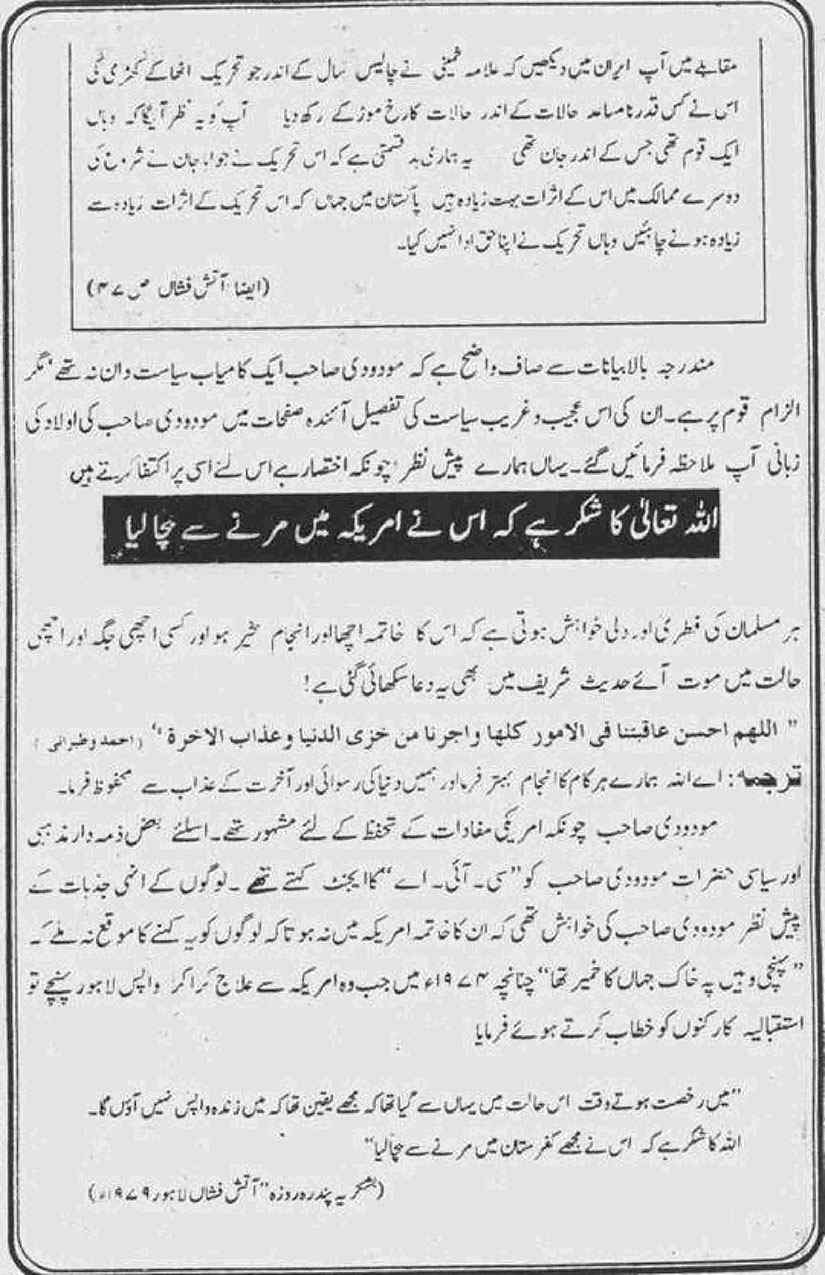 مقابلے میں آپ ایران میں دیکھیں کہ علامہ خمینی نے چالیس سال کے اندر جو تحریک اٹھا کے کھڑی کی
اس نے کس قدر نامساعد حالات کے اندر حالات کا رخ موڑ کے رکھ دیا آپ کو یہ نظر آئیگا کہ وہاں
ایک قوم تھی جس کے اندر جان تھی یہ ہماری بد قسمتی ہے کہ اس تحریک نے جو اباجان نے شروع کی
دوسرے ممالک میں اس کے اثرات بہت زیادہ ہیں پاکستان میں جہاں کہ اس تحریک کے اثرات زیادہ سے
زیادہ ہونے چاہئیں وہاں تحریک نے اپنا حق ادا نہیں کیا۔
(ایضا آتش فشاں ص ۴۷)
مندرجہ بالا بیانات سے صاف واضح ہے کہ مودودی صاحب ایک کامیاب سیاست دان نہ تھے ‘ مگر
الزام قوم پر ہے۔ ان کی اس عجیب و غریب سیاست کی تفصیل آئندہ صفحات میں مودودی صاحب کی اولاد کی
زبانی آپ ملاحظہ فرمائیں گے۔ یہاں ہمارے پیش نظر ‘ چونکہ اختصار ہے اس لئے اسی پر اکتفا کرتے ہیں
اللہ تعالیٰ کا شکر ہے کہ اس نے امریکہ میں مرنے سے بچا لیا
ہر مسلمان کی فطری اور دلی خواہش ہوتی ہے کہ اس کا خاتمہ اچھا اور انجام بخیر ہو اور کسی اچھی جگہ اور اچھی
حالت میں موت آئے حدیث شریف میں بھی یہ دعا سکھائی گئی ہے!
" اللهم احسن عاقبتنا فی الامور کلها واجرنا من خزی الدنیا وعذاب الاخرة " (احمد وطبرانی)
ترجمہ: اے اللہ ہمارے ہر کام کا انجام بہتر فرما اور ہمیں دنیا کی رسوائی اور آخرت کے عذاب سے محفوظ فرما۔
مودودی صاحب چونکہ امریکی مفادات کے تحفظ کے لئے مشہور تھے۔ اسلئے بعض ذمہ دار مذہبی
اور سیاسی حضرات مودودی صاحب کو "سی۔ آئی۔ اے" کا ایجنٹ کہتے تھے ۔ لوگوں کے انہی جذبات کے
پیش نظر مودودی صاحب کی خواہش تھی کہ ان کا خاتمہ امریکہ میں نہ ہو تا کہ لوگوں کو یہ کہنے کا موقع نہ ملے کہ
"پہنچی وہیں پہ خاک جہاں کا خمیر تھا" چنانچہ ۱۹۷۴ء میں جب وہ امریکہ سے علاج کرا کر واپس لاہور پہنچے تو
استقبالیہ کارکنوں کو خطاب کرتے ہوئے فرمایا
"میں رخصت ہوتے وقت اس حالت میں یہاں سے گیا تھا کہ مجھے یقین تھا کہ میں زندہ واپس نہیں آؤں گا۔
اللہ کا شکر ہے کہ اس نے مجھے کفرستان میں مرنے سے بچا لیا"
(بشکریہ پندرہ روزہ "آتش فشاں لاہور ۱۹۷۹ء)